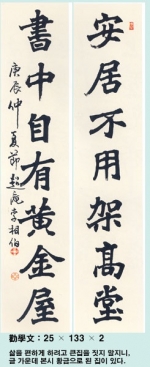 安居不用架高堂
書中自有黃金屋
庚辰仲夏節 李相伯
勸學文 : 25 × 133 × 2
삶을 편하게 하려고 큰집을 짓지 말지니,
글 가운데 본시 황금으로 된 집이 있다.